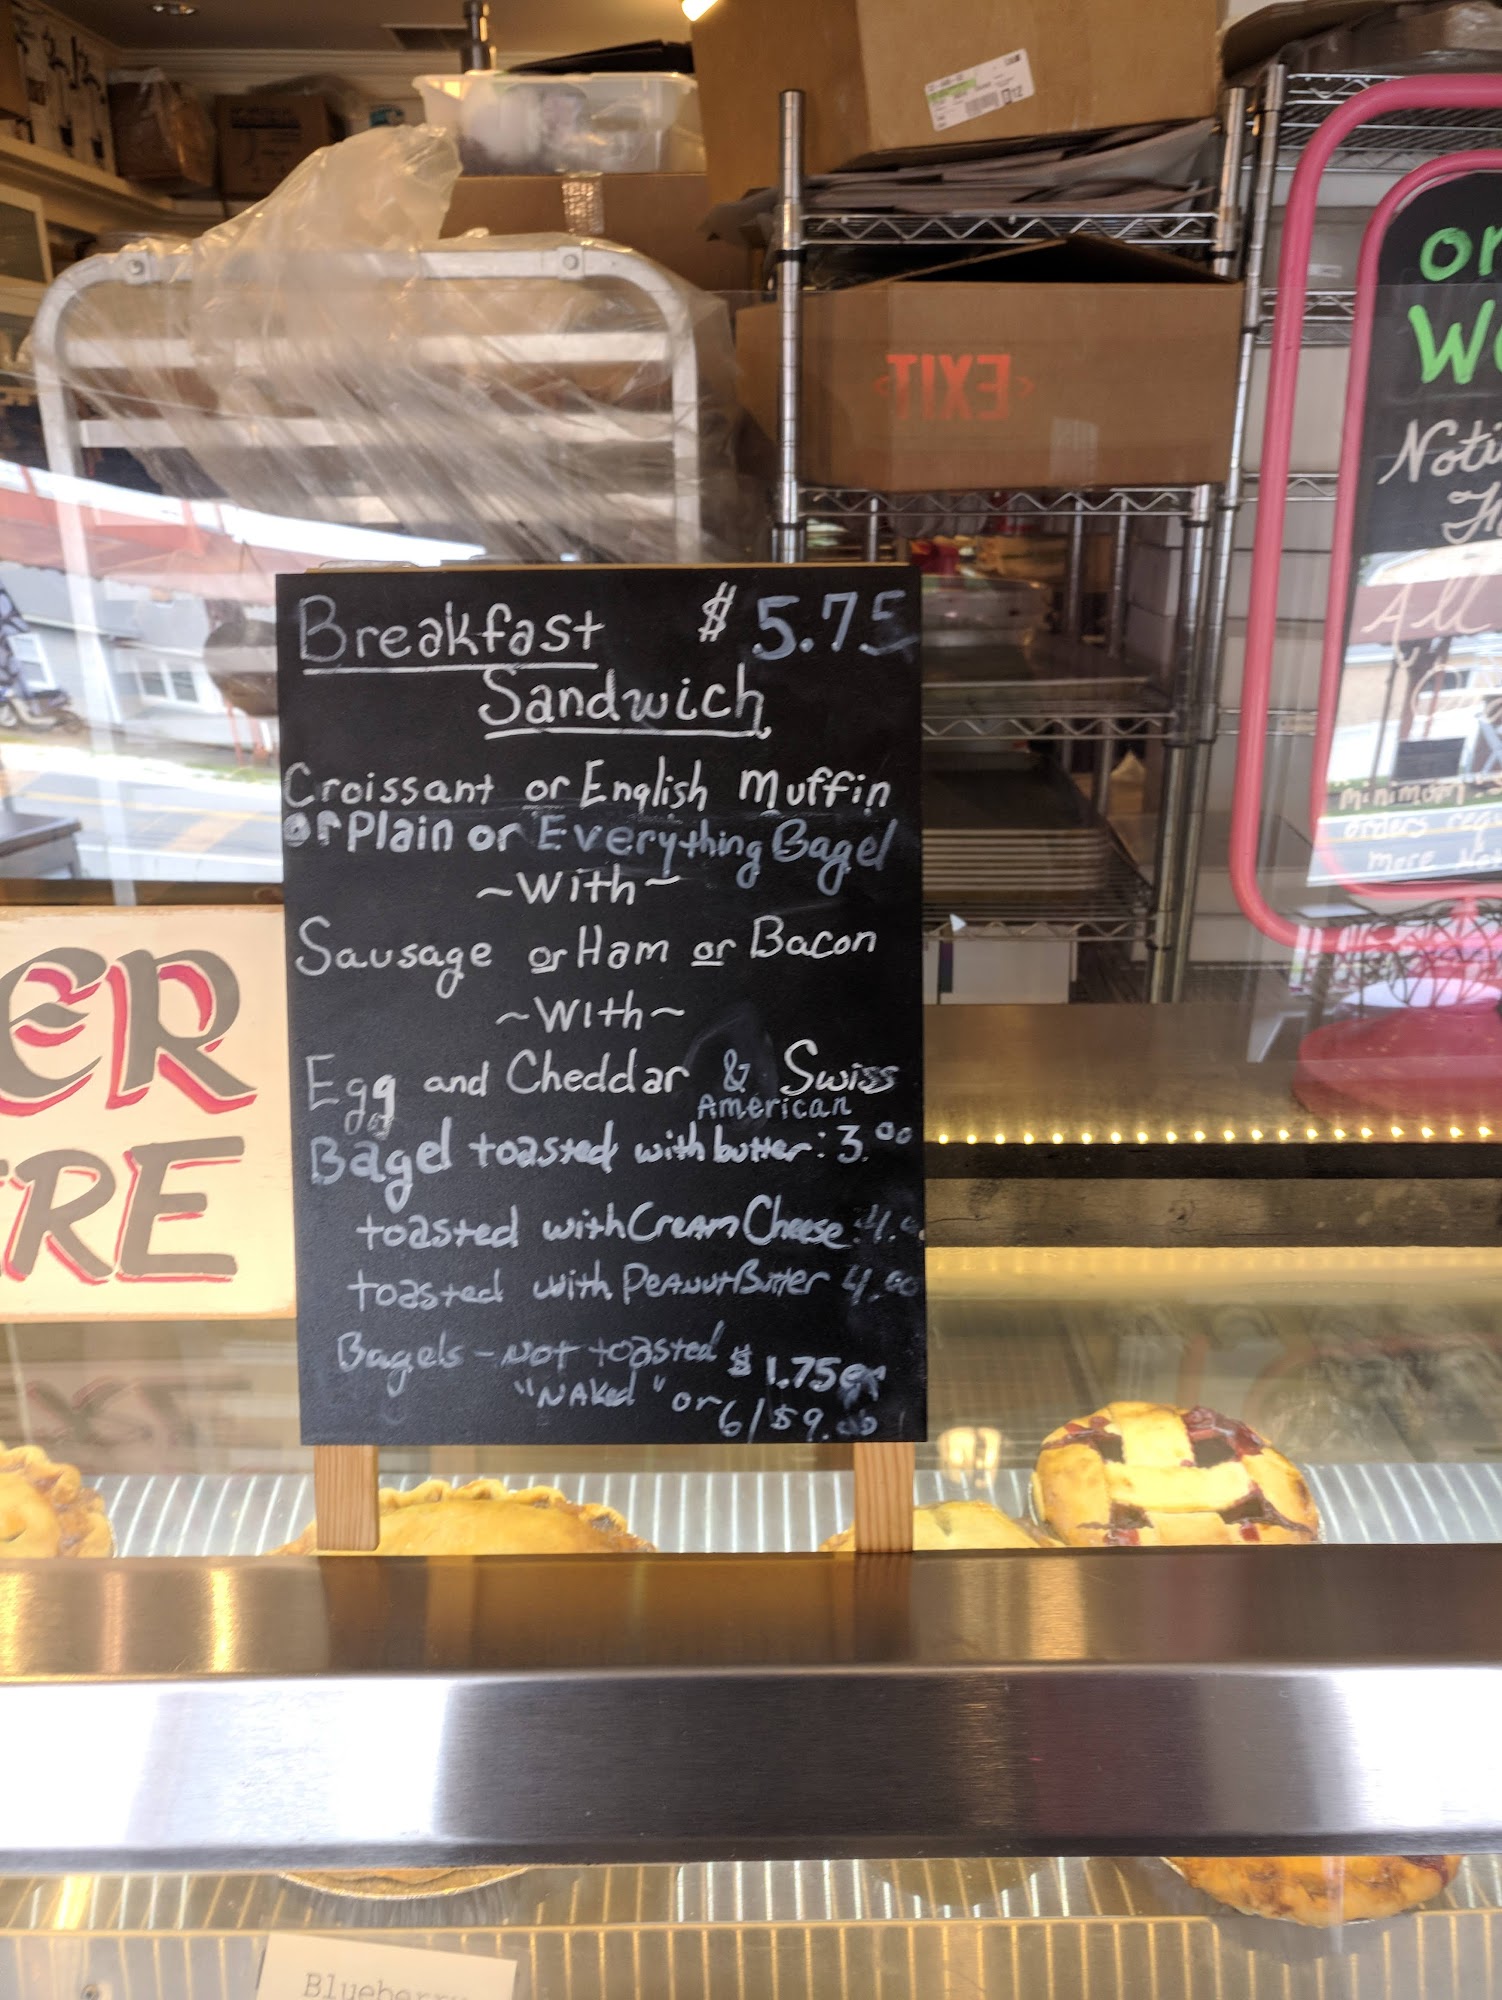 Breakfast $5.75
Sandwich
Croissant or English Muffin
or Plain or Everything Bagel
~With~
Sausage or Ham or Bacon
~With~
Egg and Cheddar & Swiss
American
Bagel toasted with butter: 3.00
toasted with Cream Cheese: 4.
toasted with Peanut Butter 4.00
Bagels - Not toasted $1.75
"Naked" or 6/$9.
EXIT
ER
RE
or
Noti
All
minimum
orders
more
Blueberry